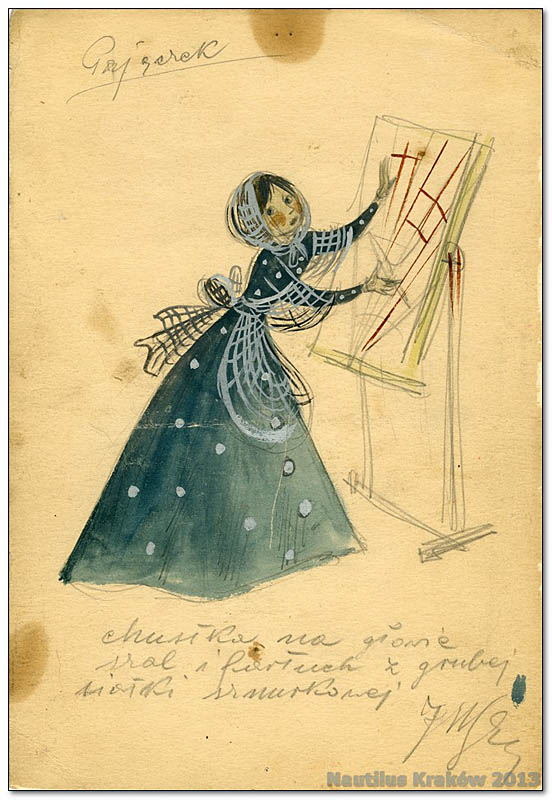 chustka na głowie
szal i fartuch z grubej
siatki sznurkowej
Nautilus Kraków 2013